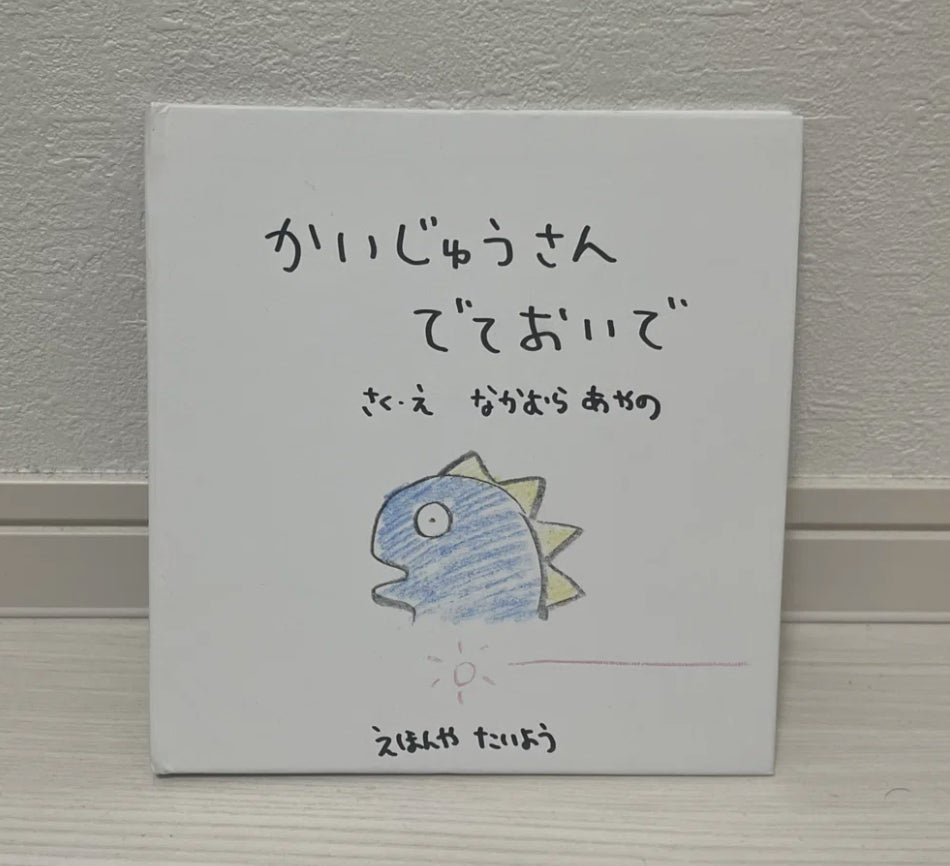 かいじゅうさん
でておいで
さく・え なかむら あやの
えほんや たいよう